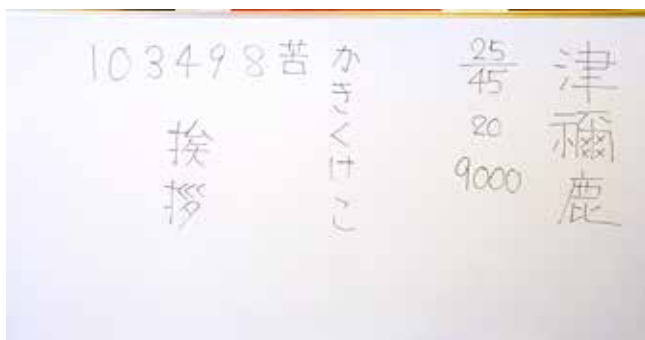 103498苦
挨拶
かきくけこ
25/45
20
9000
津禰鹿